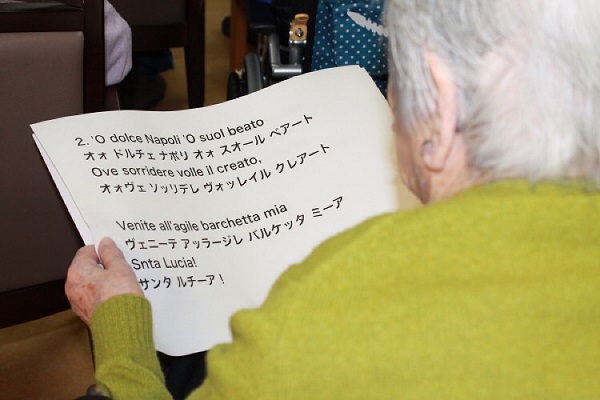 2. 'O dolce Napoli 'O suol beato
オォ ドルチェ ナポリ オォ スオール ベアート
Ove sorridere volle il creato,
オォヴェ ソッリデレ ヴォッレイル クレアート
Venite all'agile barchetta mia
ヴェニーテ アッラージレ バルケッタ ミーア
Snta Lucia!
サンタ ルチーア！